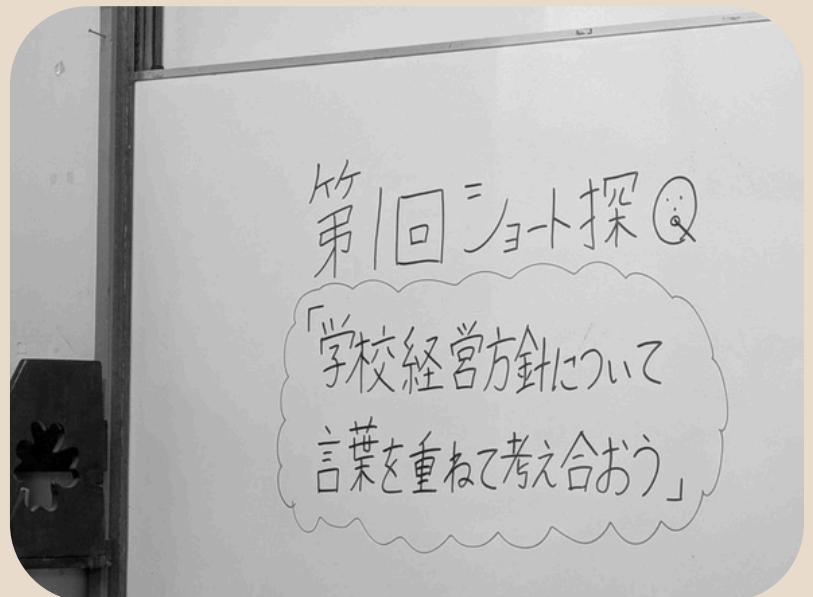 第1回ショート探Q
「学校経営方針について
言葉を重ねて考え合おう」